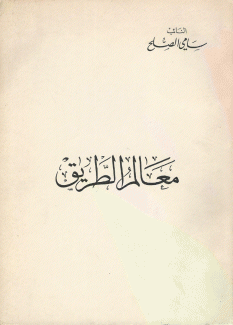 النائب
سامي الصلح
معالم الطريق